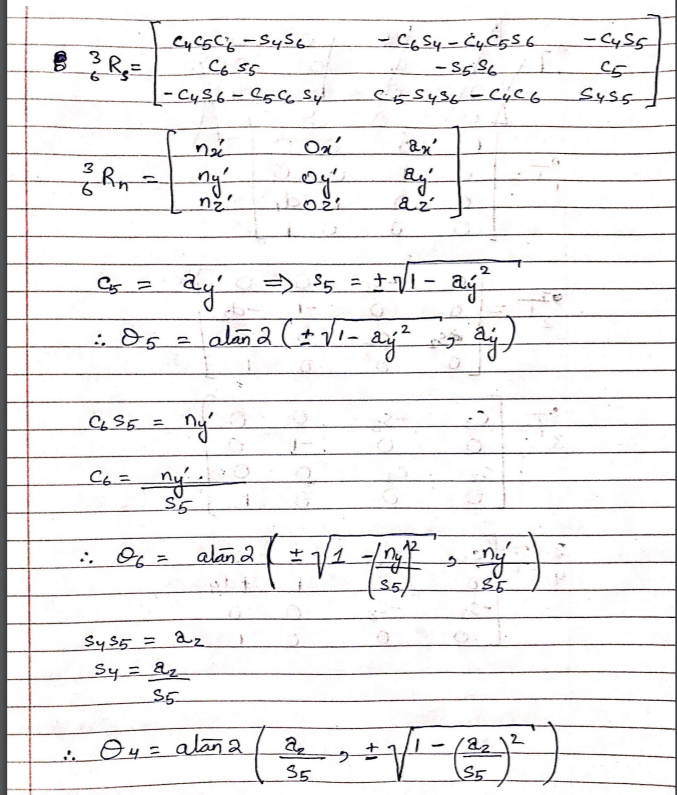 ³₆Rₛ = [ C4C5C6 - S4S6   - C6S4 - C4C5S6   - C4S5
C6 S5   - S5S6   C5
- C4S6 - C5C6 S4   C5S4S6 - C4C6   S4S5 ]
³₆Rn = [ nx'   ox'   ax'
ny'   oy'   ay'
nz'   oz'   az' ]
C5 = ay' ⇒ S5 = ±√(1 - ay'²)
∴ θ5 = atan2 (±√(1 - ay'²) , ay')
C6 S5 = ny'
C6 = ny' / S5
∴ θ6 = atan2 ( ±√(1 - (ny'/S5)²) , ny'/S5 )
S4S5 = az
S4 = az / S5
∴ θ4 = atan2 ( az/S5 , ±√(1 - (az/S5)²) )